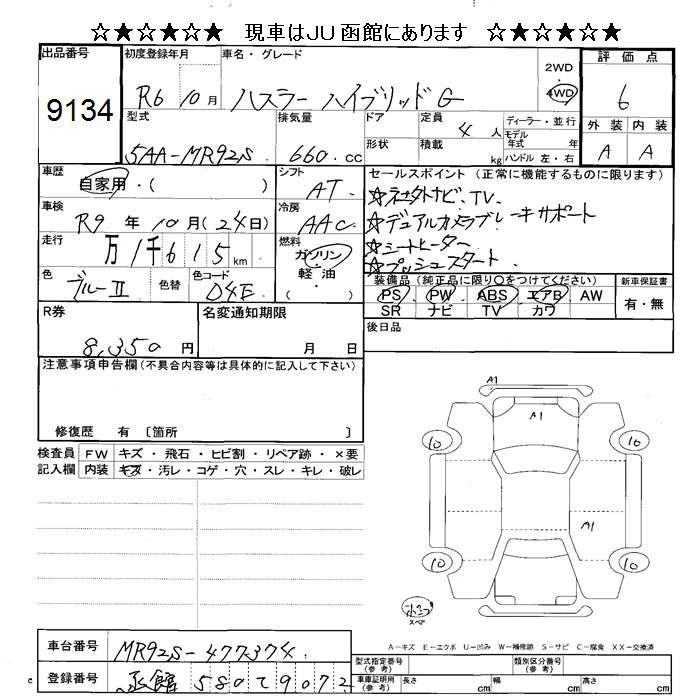 ☆★☆★☆☆ 現車はJU函館にあります ☆★☆★☆★
出品番号
9134
初度登録年月
R6 10月
車名・グレード
ハスラー ハイブリッド G
2WD
・
4WD
評価点
6
外装 内装
A A
型式
5AA-MR92S
排気量
660.cc
ドア
形状
定員
4人
積載
kg
ディーラー・並行
モデル年式 年
ハンドル 左・右
車歴
自家用・( )
シフト
AT
セールスポイント (正常に機能するものに限ります)
☆ネオ外ナビ、TV.
☆デュアルカメラブレーキサポート
☆シートヒーター
☆プッシュスタート
車検
R9年10月(24日)
冷房
AAC
走行
万1千615km
燃料
ガソリン
・
軽油
( )
色
ブルーII
色替
色コード
D4E
装備品 (純正品に限り○をつけてください)
PS PW ABS エアB AW
SR ナビ TV カワ
新車保証書
有・無
R券
8,350円
名変通知期限
月 日
後日品
注意事項申告欄(不具合内容等は具体的に記入して下さい)
修復歴 有 〔箇所 〕
検査員記入欄
FW キズ・飛石・ヒビ割・リペア跡・×要
内装 キズ・汚レ・コゲ・穴・スレ・キレ・破レ
A1
A1
10
10
A1
10
10
スペア
A-キズ E-エクボ U-凹み W-補修跡 S-サビ C-腐食 XX-交換済
車台番号
MR92S-477374
登録番号
函館 580 て 9072
型式指定番号(参考)
類別区分番号(参考)
車庫証明用(参考)
長さ cm
幅 cm
高さ cm